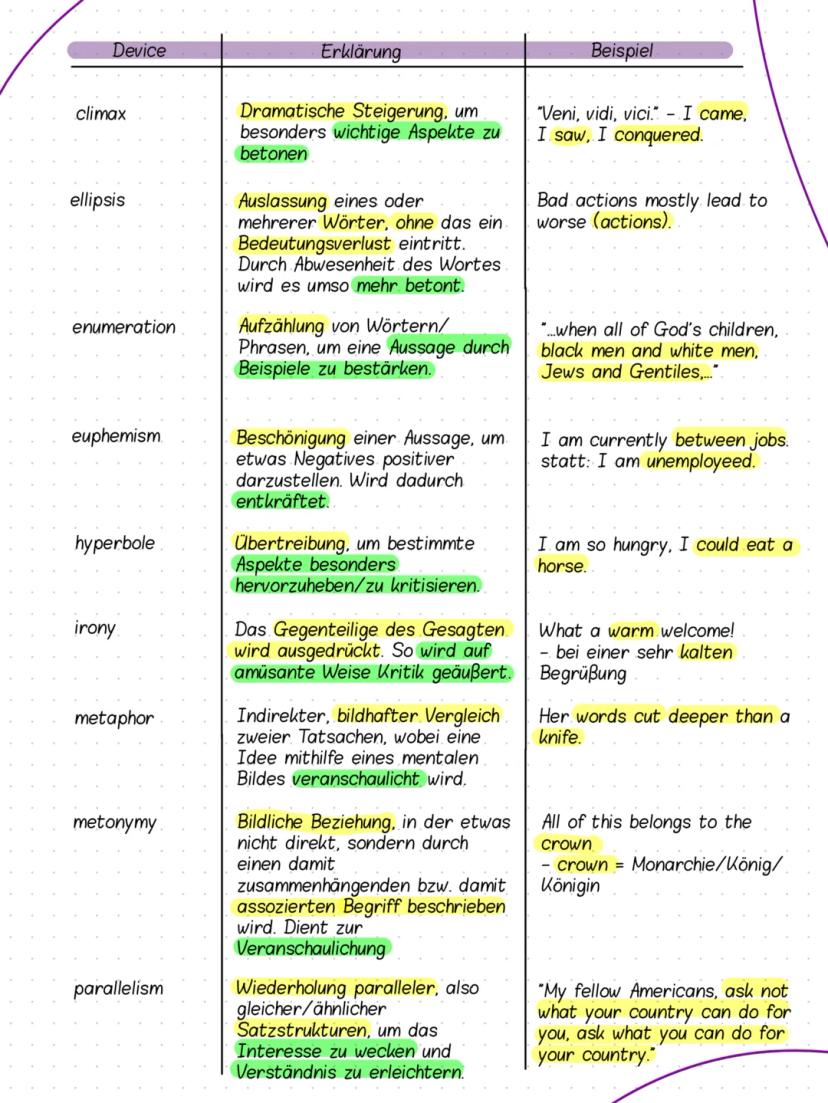 Device Erklärung Beispiel
climax
Dramatische Steigerung, um
besonders wichtige Aspekte zu
betonen
"Veni, vidi, vici." - I came,
I saw, I conquered.
ellipsis
Auslassung eines oder
mehrerer Wörter, ohne das ein
Bedeutungsverlust eintritt.
Durch Abwesenheit des Wortes
wird es umso mehr betont.
Bad actions mostly lead to
worse (actions).
enumeration
Aufzählung von Wörtern/
Phrasen, um eine Aussage durch
Beispiele zu bestärken.
"...when all of God's children,
black men and white men,
Jews and Gentiles,..."
euphemism
Beschönigung einer Aussage, um
etwas Negatives positiver
darzustellen. Wird dadurch
entkräftet.
I am currently between jobs.
statt: I am unemployeed.
hyperbole
Übertreibung, um bestimmte
Aspekte besonders
hervorzuheben/zu kritisieren.
I am so hungry, I could eat a
horse.
irony
Das Gegenteilige des Gesagten
wird ausgedrückt. So wird auf
amüsante Weise Kritik geäußert.
What a warm welcome!
- bei einer sehr kalten
Begrüßung
metaphor
Indirekter, bildhafter Vergleich
zweier Tatsachen, wobei eine
Idee mithilfe eines mentalen
Bildes veranschaulicht wird.
Her words cut deeper than a
knife.
metonymy
Bildliche Beziehung, in der etwas
nicht direkt, sondern durch
einen damit
zusammenhängenden bzw. damit
assozierten Begriff beschrieben
wird. Dient zur
Veranschaulichung
All of this belongs to the
crown
- crown = Monarchie/König/
Königin
parallelism
Wiederholung paralleler, also
gleicher/ähnlicher
Satzstrukturen, um das
Interesse zu wecken und
Verständnis zu erleichtern.
"My fellow Americans, ask not
what your country can do for
you, ask what you can do for
your country."